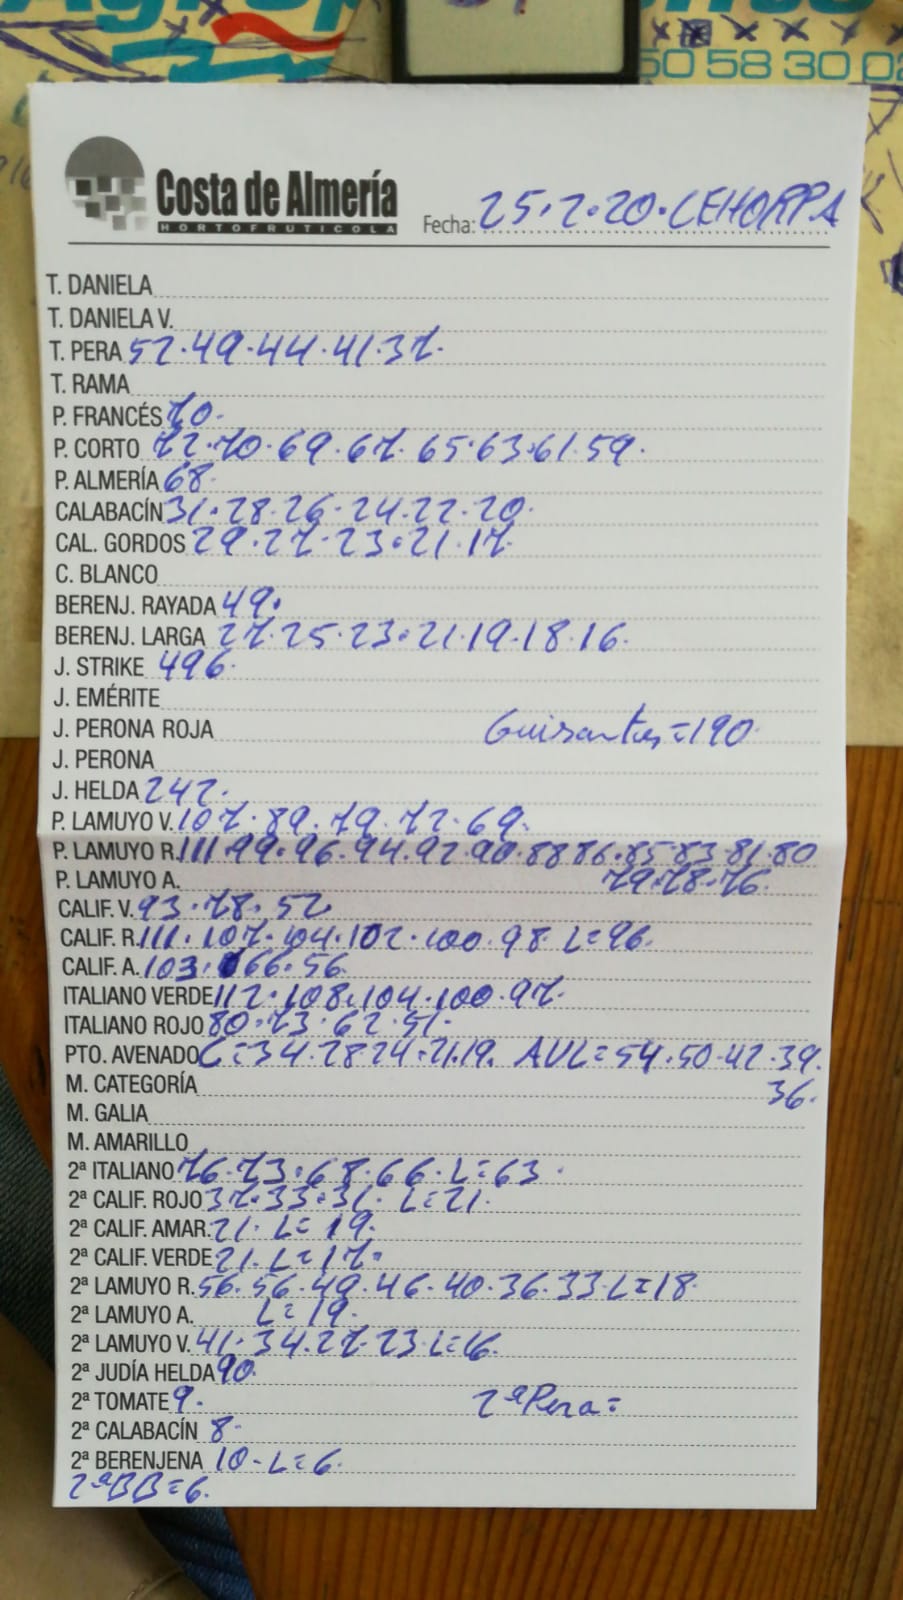 50 58 30 02
Costa de Almería
HORTOFRUTICOLA
Fecha: 25.2.20. CEHORPA
T. DANIELA
T. DANIELA V.
T. PERA 52.49.44.41.37.
T. RAMA
P. FRANCÉS 70.
P. CORTO 72.70.69.67.65.63.61.59.
P. ALMERÍA 68.
CALABACÍN 31.28.26.24.22.20.
CAL. GORDOS 29.27.23.21.17.
C. BLANCO
BERENJ. RAYADA 49.
BERENJ. LARGA 27.25.23.21.19.18.16.
J. STRIKE 496.
J. EMÉRITE
J. PERONA ROJA Guisantes=190.
J. PERONA
J. HELDA 242.
P. LAMUYO V. 107.89.79.72.69.
P. LAMUYO R. 111.99.96.94.92.90.88 86.85.83.81.80
P. LAMUYO A. 79.78.76.
CALIF. V. 93.78.52
CALIF. R. 111.107.104.102.100.98. L=96.
CALIF. A. 103. 66.56.
ITALIANO VERDE 112.108.104.100.97.
ITALIANO ROJO 80.73.62.51.
PTO. AVENADO C=34.28 24.21.19. AVL=54.50.42.39.
M. CATEGORÍA 36.
M. GALIA
M. AMARILLO
2ª ITALIANO 76.73.68.66. L=63.
2ª CALIF. ROJO 37.33.31. L=21.
2ª CALIF. AMAR. 21. L=19.
2ª CALIF. VERDE 21. L=17.
2ª LAMUYO R. 56.56.49.46.40.36.33. L=18.
2ª LAMUYO A. L=19.
2ª LAMUYO V. 41.34.27.23. L=16.
2ª JUDÍA HELDA 90.
2ª TOMATE 9. 2ª Pera=
2ª CALABACÍN 8.
2ª BERENJENA 10. L=6.
2ª BB=6.